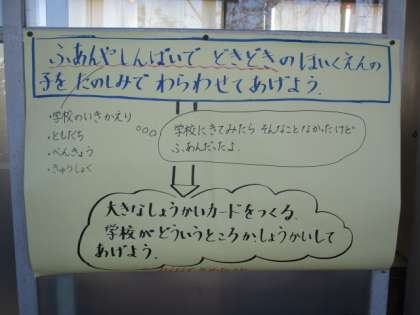 ふあんやしんぱいで どきどきのほいくえんの
子を たのしみで わらわせてあげよう.
・学校のいきかえり
・ともだち
・べんきょう
・きゅうしょく
学校にきてみたら そんなことなかったけど
ふあんだったよ.
大きなしょうかいカードをつくる.
学校がどういうところか、しょうかいして
あげよう.